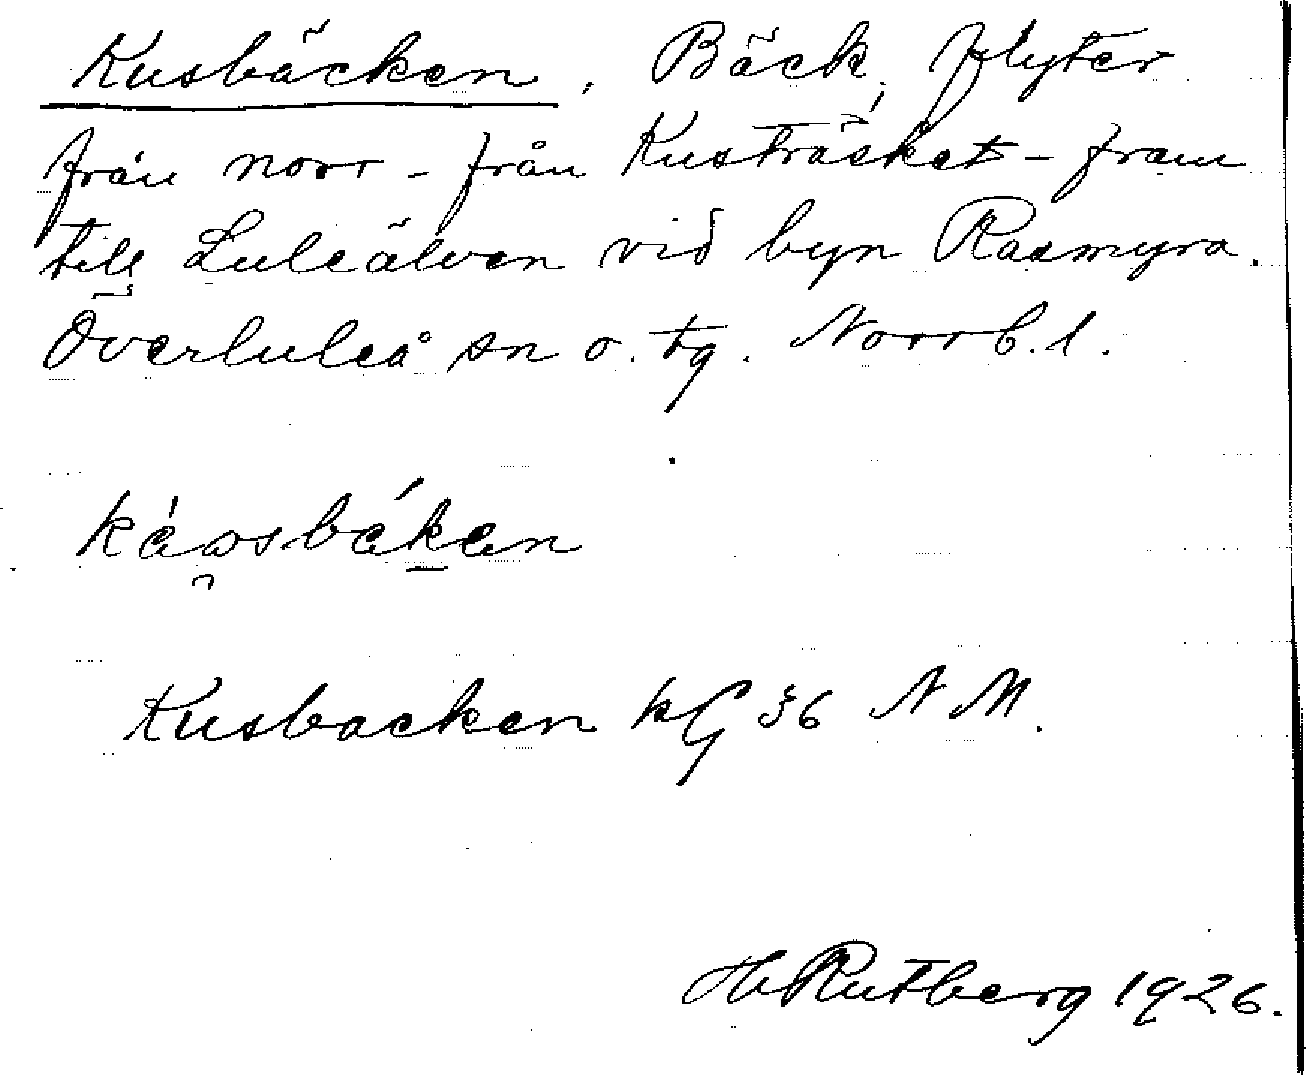 Kusbäcken, Bäck, flyter
från norr - från Kusträsket - fram
till Luleälven vid byn Rasmyra.
Överluleå sn o. tg. Norrb. l.
Kusbacken kG 36 N M.
H Rutberg 1926.